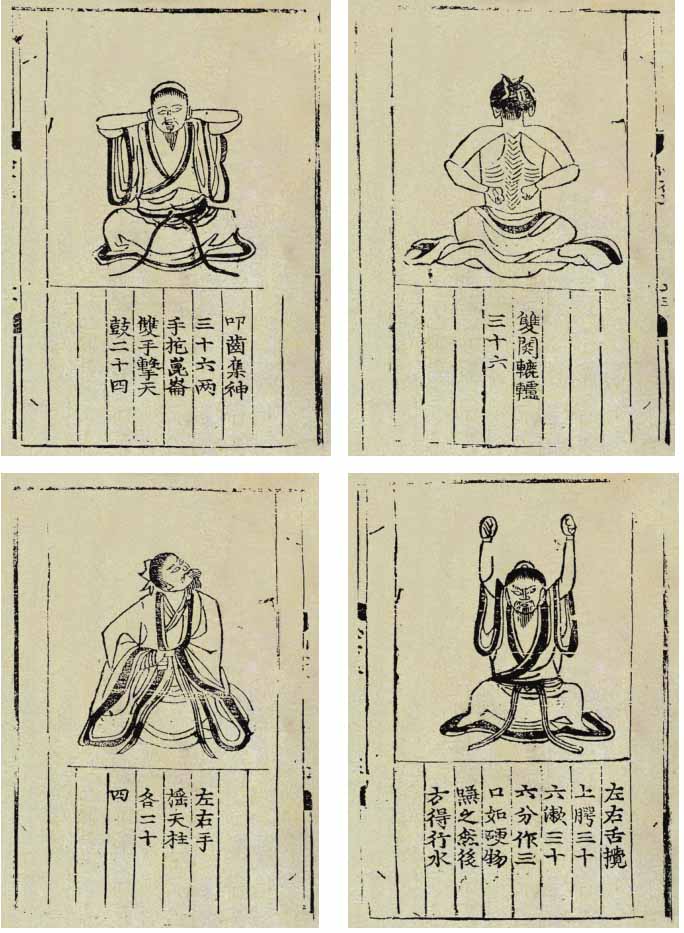 叩齒集神
三十六两
手抱崑崙
雙手擊天
鼓二十四
雙関轆轤
三十六
左右手
摇天柱
各二十
四
左右舌攪
上腭三十
六漱三十
六分作三
口如硬物
嚥之然後
方得行水